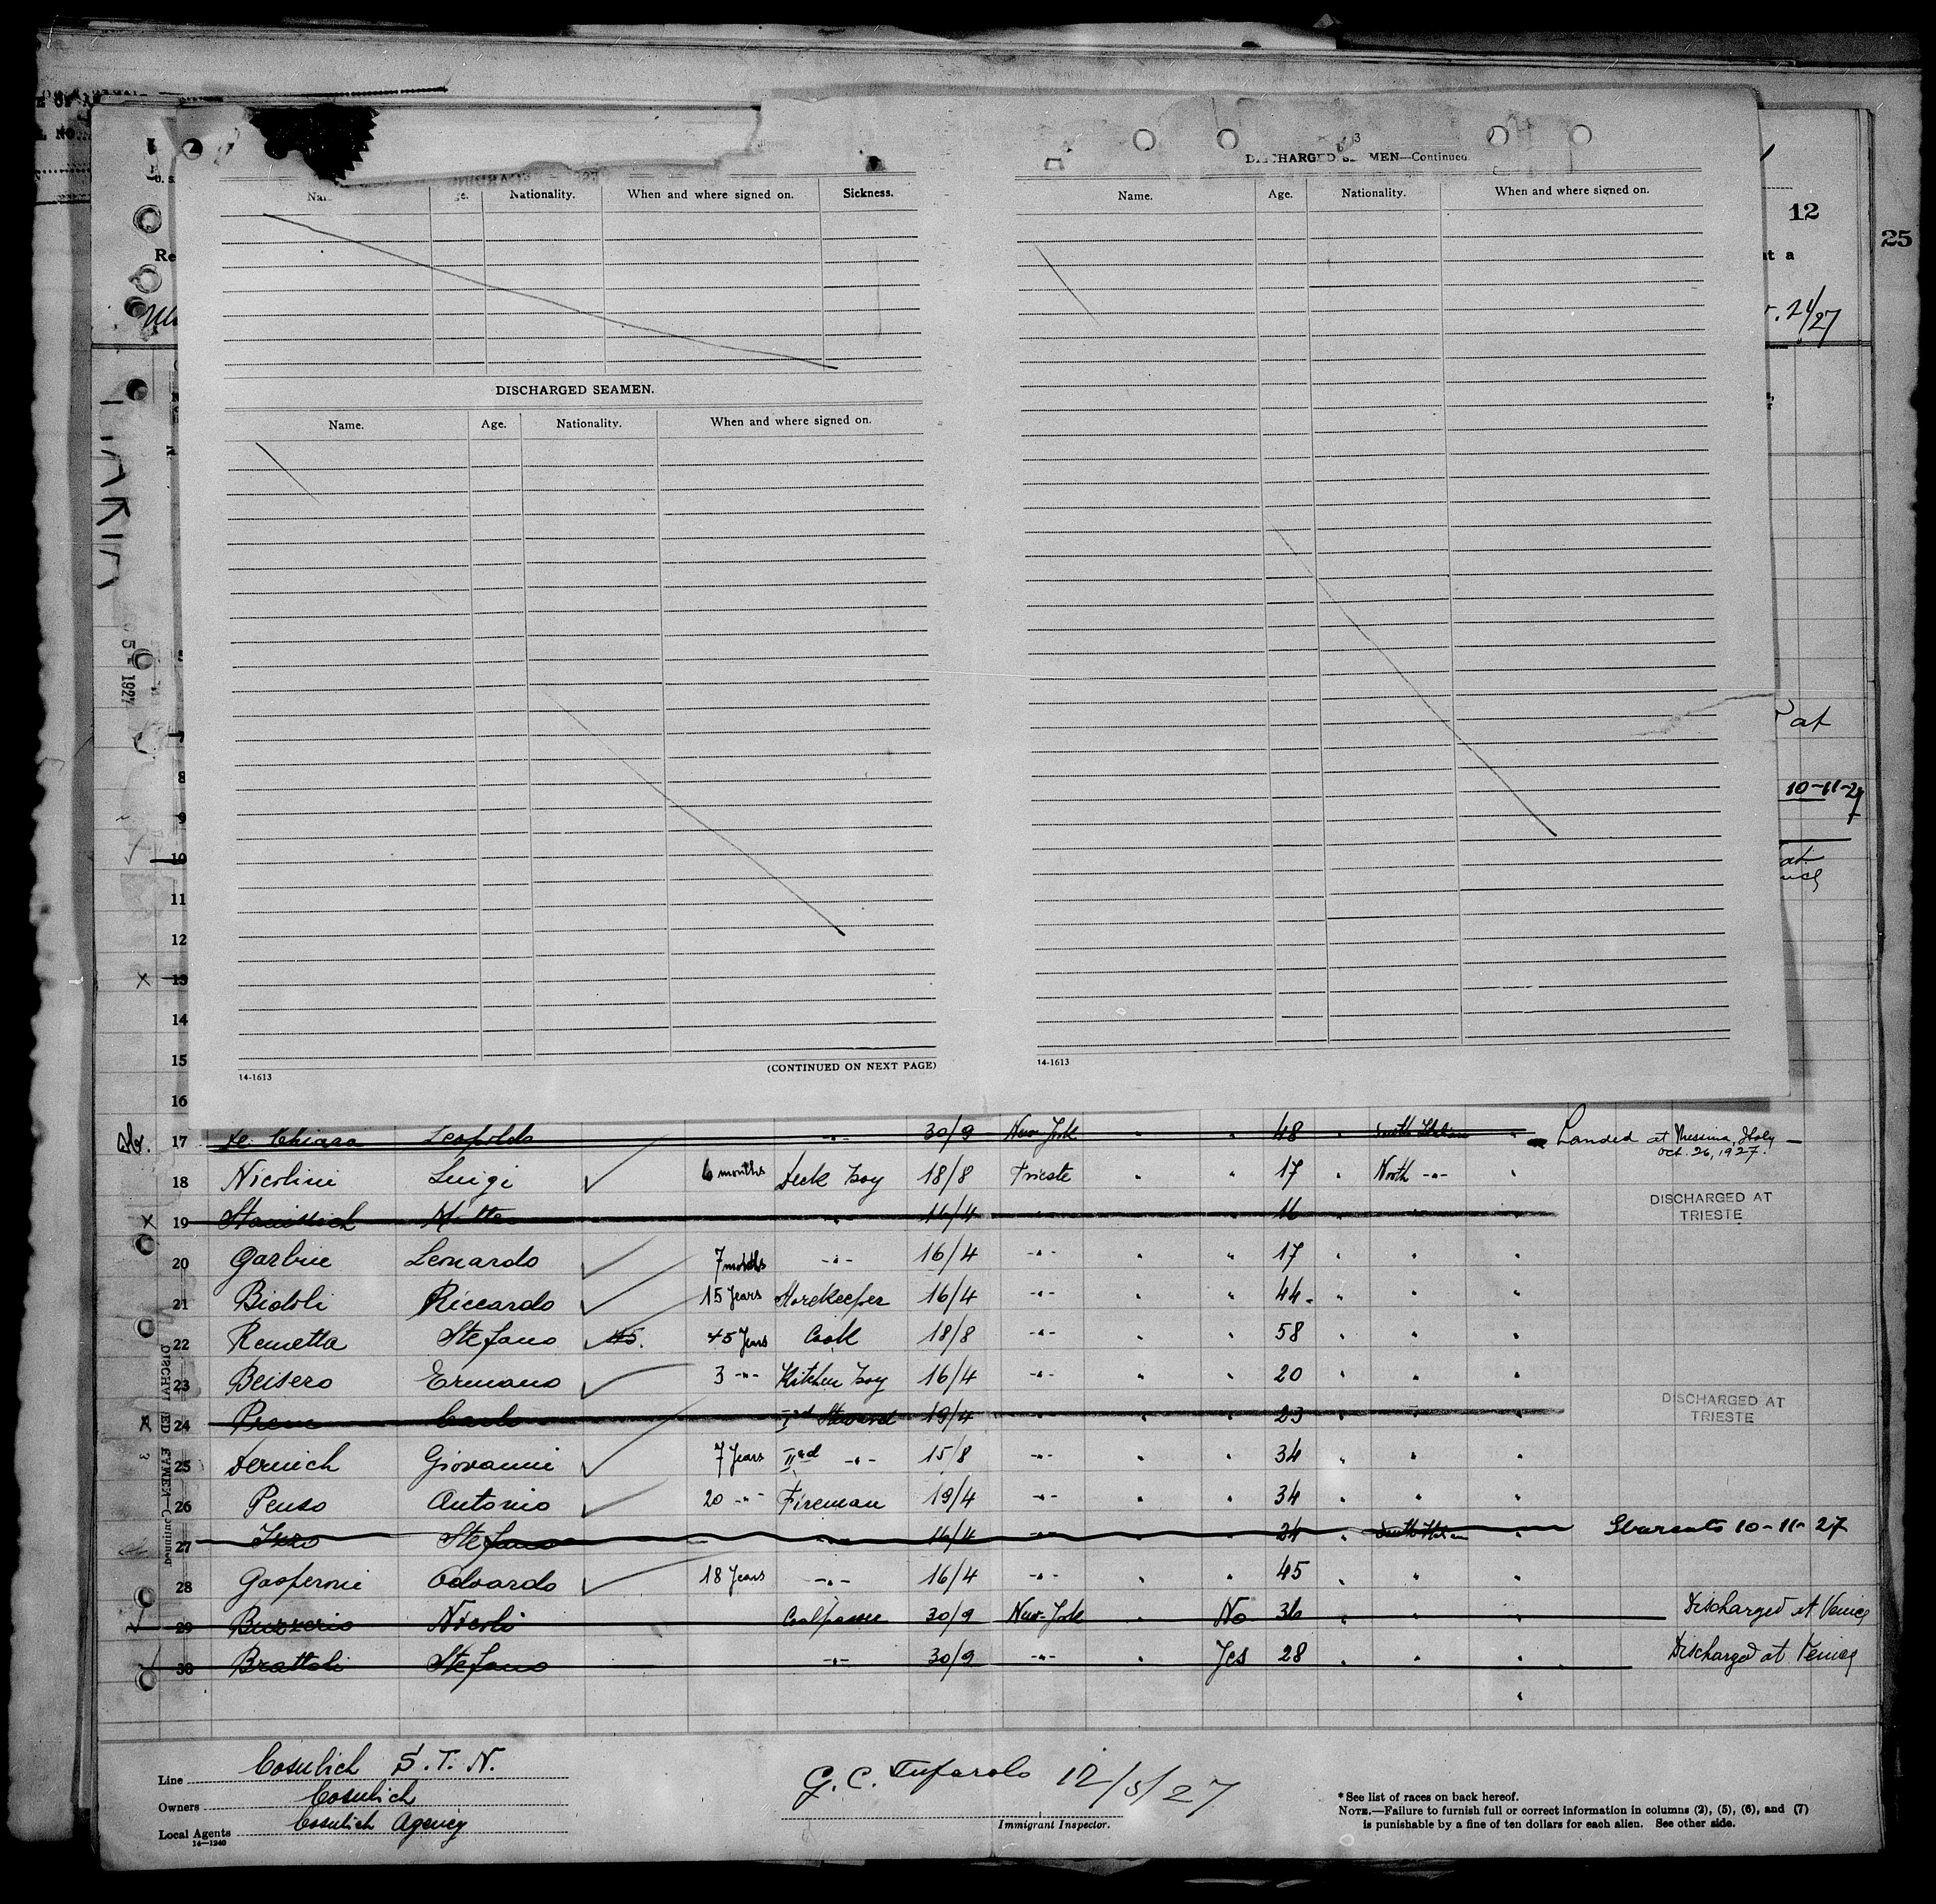 DISCHARGED SEAMEN—Continued
Nationality. When and where signed on. Sickness.
Name. Age. Nationality. When and where signed on.
12
25
Re
at a
21/27
DISCHARGED SEAMEN.
Name. Age. Nationality. When and where signed on.
5 - 1927
at
8
10-11-27
9
10
at
11
12
x 13
14
15
(CONTINUED ON NEXT PAGE)
14-1613
14-1613
16
17 de Chiara Leopoldo -"- 30/9 New-York " " 48 " South Italian " Landed at Messina, Italy
oct. 26, 1927.
18 Nicolini Luigi 6 months Deck boy 18/8 Trieste " " 17 " North -"- "
DISCHARGED AT
TRIESTE
x 19 16/4 -"- " " "
20 Garbin Leonardo 7 months -"- 16/4 -"- " " 17 " " "
21 Bidoli Riccardo 15 Years Storekeeper 16/4 -"- " " 44 " " "
22 Remetta Stefano 45. 45 Years Cook 18/8 -"- " " 58 " " "
23 Beisero Ermano 3 -"- Kitchen boy 16/4 -"- " " 20 " " "
DISCHARGED AT
TRIESTE
24 Carlo Steward 19/4 -"- " " 23 " " "
25 Dernich Giovanni 7 Years IInd -"- 15/8 -"- " " 34 " " "
26 Penso Antonio 20 -"- Fireman 19/4 -"- " " 34 " " "
27 Stefano -"- 16/4 -"- " 24 " South Italian " 10-11-27
28 Gasperini Edoardo 18 Years -"- 16/4 -"- " " 45 " " "
29 Nicolò Coalpasser 30/9 New-York " No 36 " " " Discharged at Venice
30 Brattoli Stefano -"- 30/9 -"- Yes 28 " " " Discharged at Venice
DISCHARGED SEAMEN—Continued
3
Line Cosulich S.T.N.
Owners Cosulich
Local Agents Cosulich Agency
14—1240
G. C. Tufarolo 12/5/27
Immigrant Inspector.
* See list of races on back hereof.
NOTE.—Failure to furnish full or correct information in columns (2), (5), (6), and (7)
is punishable by a fine of ten dollars for each alien. See other side.